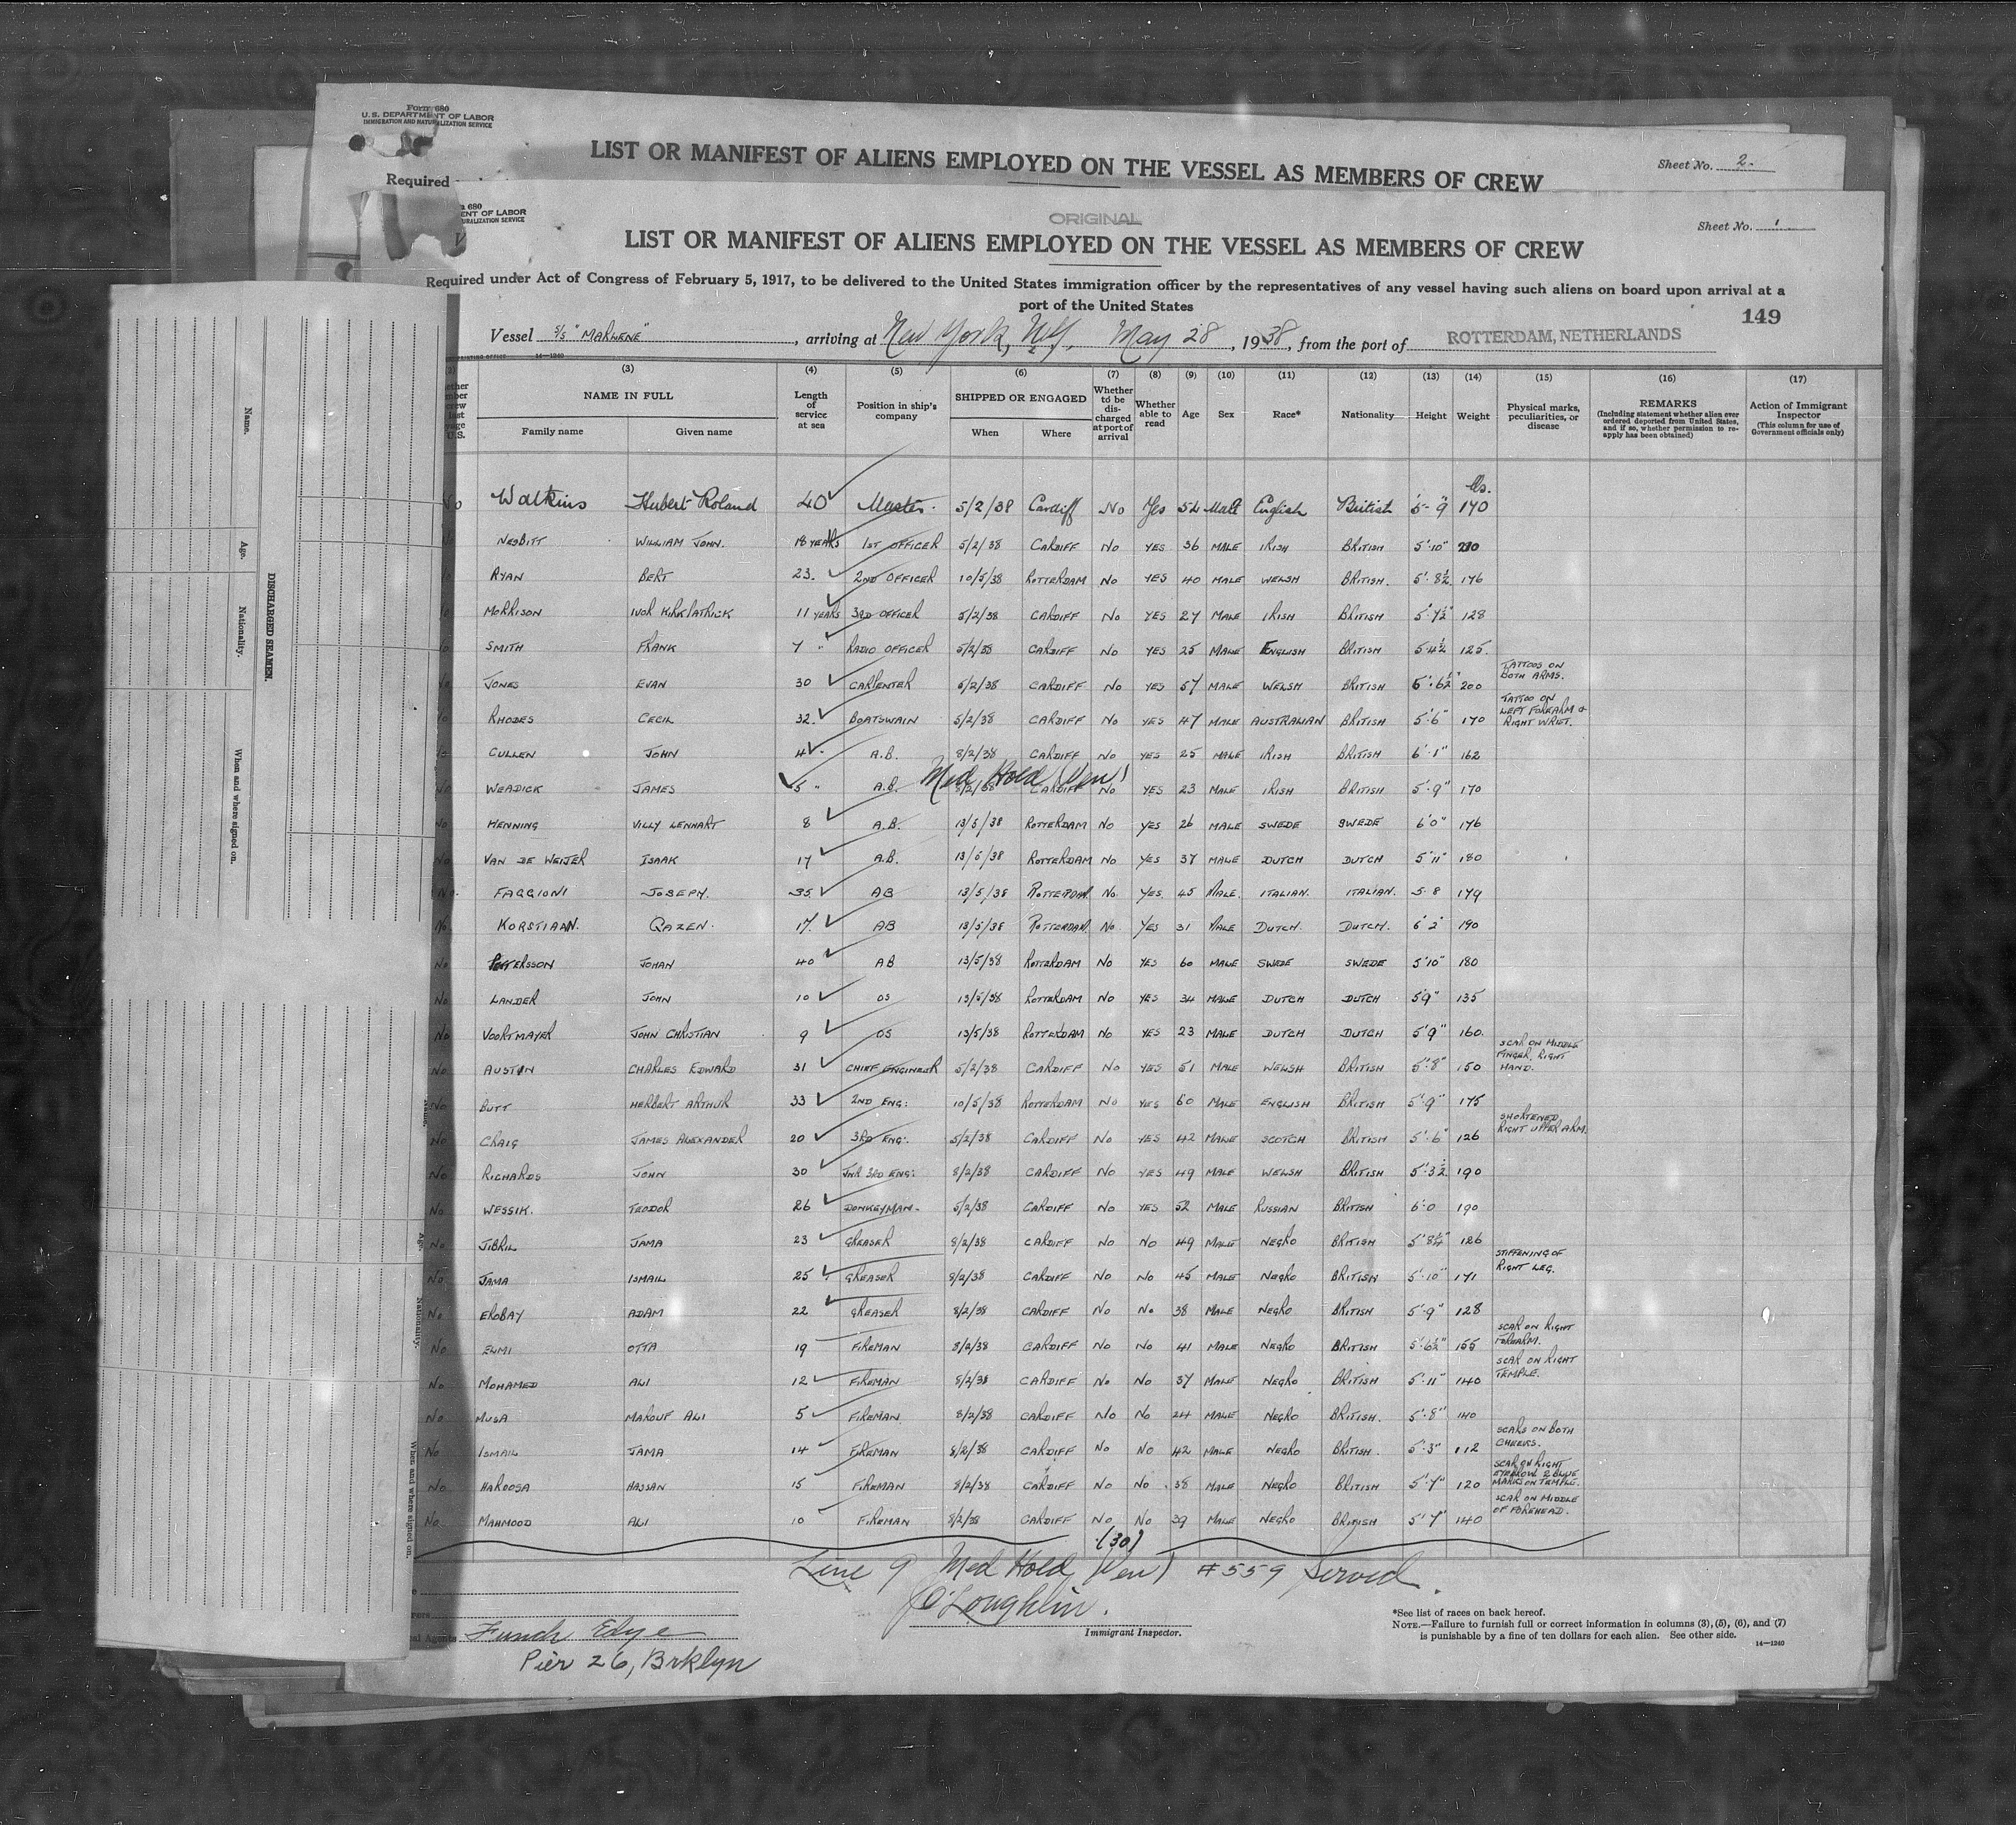 Form 680
U.S. DEPARTMENT OF LABOR
IMMIGRATION AND NATURALIZATION SERVICE
LIST OR MANIFEST OF ALIENS EMPLOYED ON THE VESSEL AS MEMBERS OF CREW
Sheet No. 2.
Required
680
ENT OF LABOR
URALIZATION SERVICE
ORIGINAL
Sheet No. 1
LIST OR MANIFEST OF ALIENS EMPLOYED ON THE VESSEL AS MEMBERS OF CREW
Required under Act of Congress of February 5, 1917, to be delivered to the United States immigration officer by the representatives of any vessel having such aliens on board upon arrival at a
port of the United States
149
Vessel S/S "MARLENE", arriving at New York, N.Y. May 28, 1938, from the port of ROTTERDAM, NETHERLANDS
14—1240
(3) (4) (5) (6) (7) (8) (9) (10) (11) (12) (13) (14) (15) (16) (17)
NAME IN FULL Family name Given name Length of service at sea Position in ship's company SHIPPED OR ENGAGED When Where Whether to be discharged at port of arrival Whether able to read Age Sex Race* Nationality Height Weight Physical marks, peculiarities, or disease REMARKS (Including statement whether alien ever ordered deported from United States, and if so, whether permission to reapply has been obtained) Action of Immigrant Inspector (This column for use of Government officials only)
lbs.
No Watkins Hubert Roland 40 Master. 5/2/38 Cardiff No Yes 54 Male English British 5-9" 170
NESBITT WILLIAM JOHN. 18 YEARS 1ST OFFICER 5/2/38 CARDIFF NO YES 36 MALE IRISH BRITISH 5'·10" 210
RYAN BERT 23. 2ND OFFICER 10/5/38 ROTTERDAM NO YES 40 MALE WELSH BRITISH. 5'·8½ 176
MORRISON IVOR KIRKPATRICK 11 YEARS 3RD OFFICER 5/2/38 CARDIFF NO YES 27 MALE IRISH BRITISH 5'·7½" 128
SMITH FRANK 7 " RADIO OFFICER 5/2/38 CARDIFF NO YES 25 MALE ENGLISH BRITISH 5·4½ 125.
JONES EVAN 30 CARPENTER 5/2/38 CARDIFF NO YES 57 MALE WELSH BRITISH 5'·6½" 200 TATTOOS ON BOTH ARMS.
RHODES CECIL 32. BOATSWAIN 5/2/38 CARDIFF NO YES 47 MALE AUSTRALIAN BRITISH 5'·6" 170 TATTOO ON LEFT FOREARM & RIGHT WRIST.
CULLEN JOHN 4 A.B. 8/2/38 CARDIFF NO YES 25 MALE IRISH BRITISH 6'·1" 162
Med Hold (Ven)
NO WEADICK JAMES 5 " A.B. 8/2/38 CARDIFF NO YES 23 MALE IRISH BRITISH 5'·9" 170
NO HENNING VILLY LENHART 8 A.B. 13/5/38 ROTTERDAM NO YES 26 MALE SWEDE SWEDE 6'0" 176
NO VAN DE WEIJER ISAAK 17 A.B. 13/5/38 ROTTERDAM NO YES 37 MALE DUTCH DUTCH 5'11" 180
NO. FAGGIONI JOSEPH. 35. AB 13/5/38 ROTTERDAM. NO. YES. 45 MALE. ITALIAN. ITALIAN. 5·8 179
NO. KORSTIAAN. QAZEN. 17. AB 13/5/38 ROTTERDAM. NO. YES 31 MALE DUTCH. DUTCH. 6'2" 190
NO PETTERSSON JOHAN 40 AB 13/5/38 ROTTERDAM NO YES 60 MALE SWEDE SWEDE 5'10" 180
NO LANDER JOHN 10 OS 13/5/38 ROTTERDAM NO YES 34 MALE DUTCH DUTCH 5'9" 135
NO VOORTMAYER JOHN CHRISTIAN 9 OS 13/5/38 ROTTERDAM NO YES 23 MALE DUTCH DUTCH 5'9" 160.
NO AUSTIN CHARLES EDWARD 31 CHIEF ENGINEER 5/2/38 CARDIFF NO YES 51 MALE WELSH BRITISH 5'·8" 150 SCAR ON MIDDLE FINGER, RIGHT HAND.
NO BUTT HERBERT ARTHUR 33 2ND ENG: 10/5/38 ROTTERDAM NO YES 60 MALE ENGLISH BRITISH 5'·9" 175
NO CRAIG JAMES ALEXANDER 20 3RD ENG: 5/2/38 CARDIFF NO YES 42 MALE SCOTCH BRITISH 5'·6" 126 SHORTENED RIGHT UPPER ARM.
NO RICHARDS JOHN 30 JNR 3RD ENG: 8/2/38 CARDIFF NO YES 49 MALE WELSH BRITISH 5'·3½ 190
NO WESSIK. TEODOR 26 DONKEYMAN. 5/2/38 CARDIFF NO YES 52 MALE RUSSIAN BRITISH 6'·0 190
NO JIBRIL JAMA 23 GREASER 8/2/38 CARDIFF NO NO 49 MALE NEGRO BRITISH 5'8½" 126
NO JAMA ISMAIL 25 GREASER 8/2/38 CARDIFF NO NO 45 MALE NEGRO BRITISH 5'·10" 171 STIFFENING OF RIGHT LEG.
NO EROBAY ADAM 22 GREASER 8/2/38 CARDIFF NO NO 38 MALE NEGRO BRITISH 5'·9" 128
NO ELMI OTTA 19 FIREMAN 8/2/38 CARDIFF NO NO 41 MALE NEGRO BRITISH 5'·6½" 155 SCAR ON RIGHT FOREARM.
NO MOHAMED ALI 12 FIREMAN 8/2/38 CARDIFF NO NO 37 MALE NEGRO BRITISH 5'·11" 140 SCAR ON RIGHT TEMPLE.
NO MUSA MAROUF ALI 5 FIREMAN 8/2/38 CARDIFF NO NO 24 MALE NEGRO BRITISH. 5'·8" 140
NO ISMAIL JAMA 14 FIREMAN 8/2/38 CARDIFF NO NO 42 MALE NEGRO BRITISH. 5'·3" 112 SCARS ON BOTH CHEEKS.
NO. HAROOSA HASSAN 15 FIREMAN 8/2/38 CARDIFF NO NO 38 MALE NEGRO BRITISH 5'·7" 120 SCAR ON RIGHT EYEBROW 2 BLUE MARKS ON TEMPLE.
NO. MAHMOOD ALI 10 FIREMAN 8/2/38 CARDIFF NO NO 39 MALE NEGRO BRITISH 5'·7" 140 SCAR ON MIDDLE OF FOREHEAD.
(30)
Line 9 Med Hold (Ven) #559 Served.
O'Loughlin.
Immigrant Inspector.
Funch Edye
Pier 26, Brklyn
*See list of races on back hereof.
NOTE.—Failure to furnish full or correct information in columns (3), (5), (6), and (7)
is punishable by a fine of ten dollars for each alien. See other side.
14—1240
DISCHARGED SEAMEN.
Name.
Age.
Nationality.
When and where signed on.
Age.
Nationality.
When and where signed on.